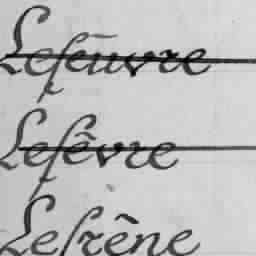 Lefeuvre
Lefêvre
Lefrêne